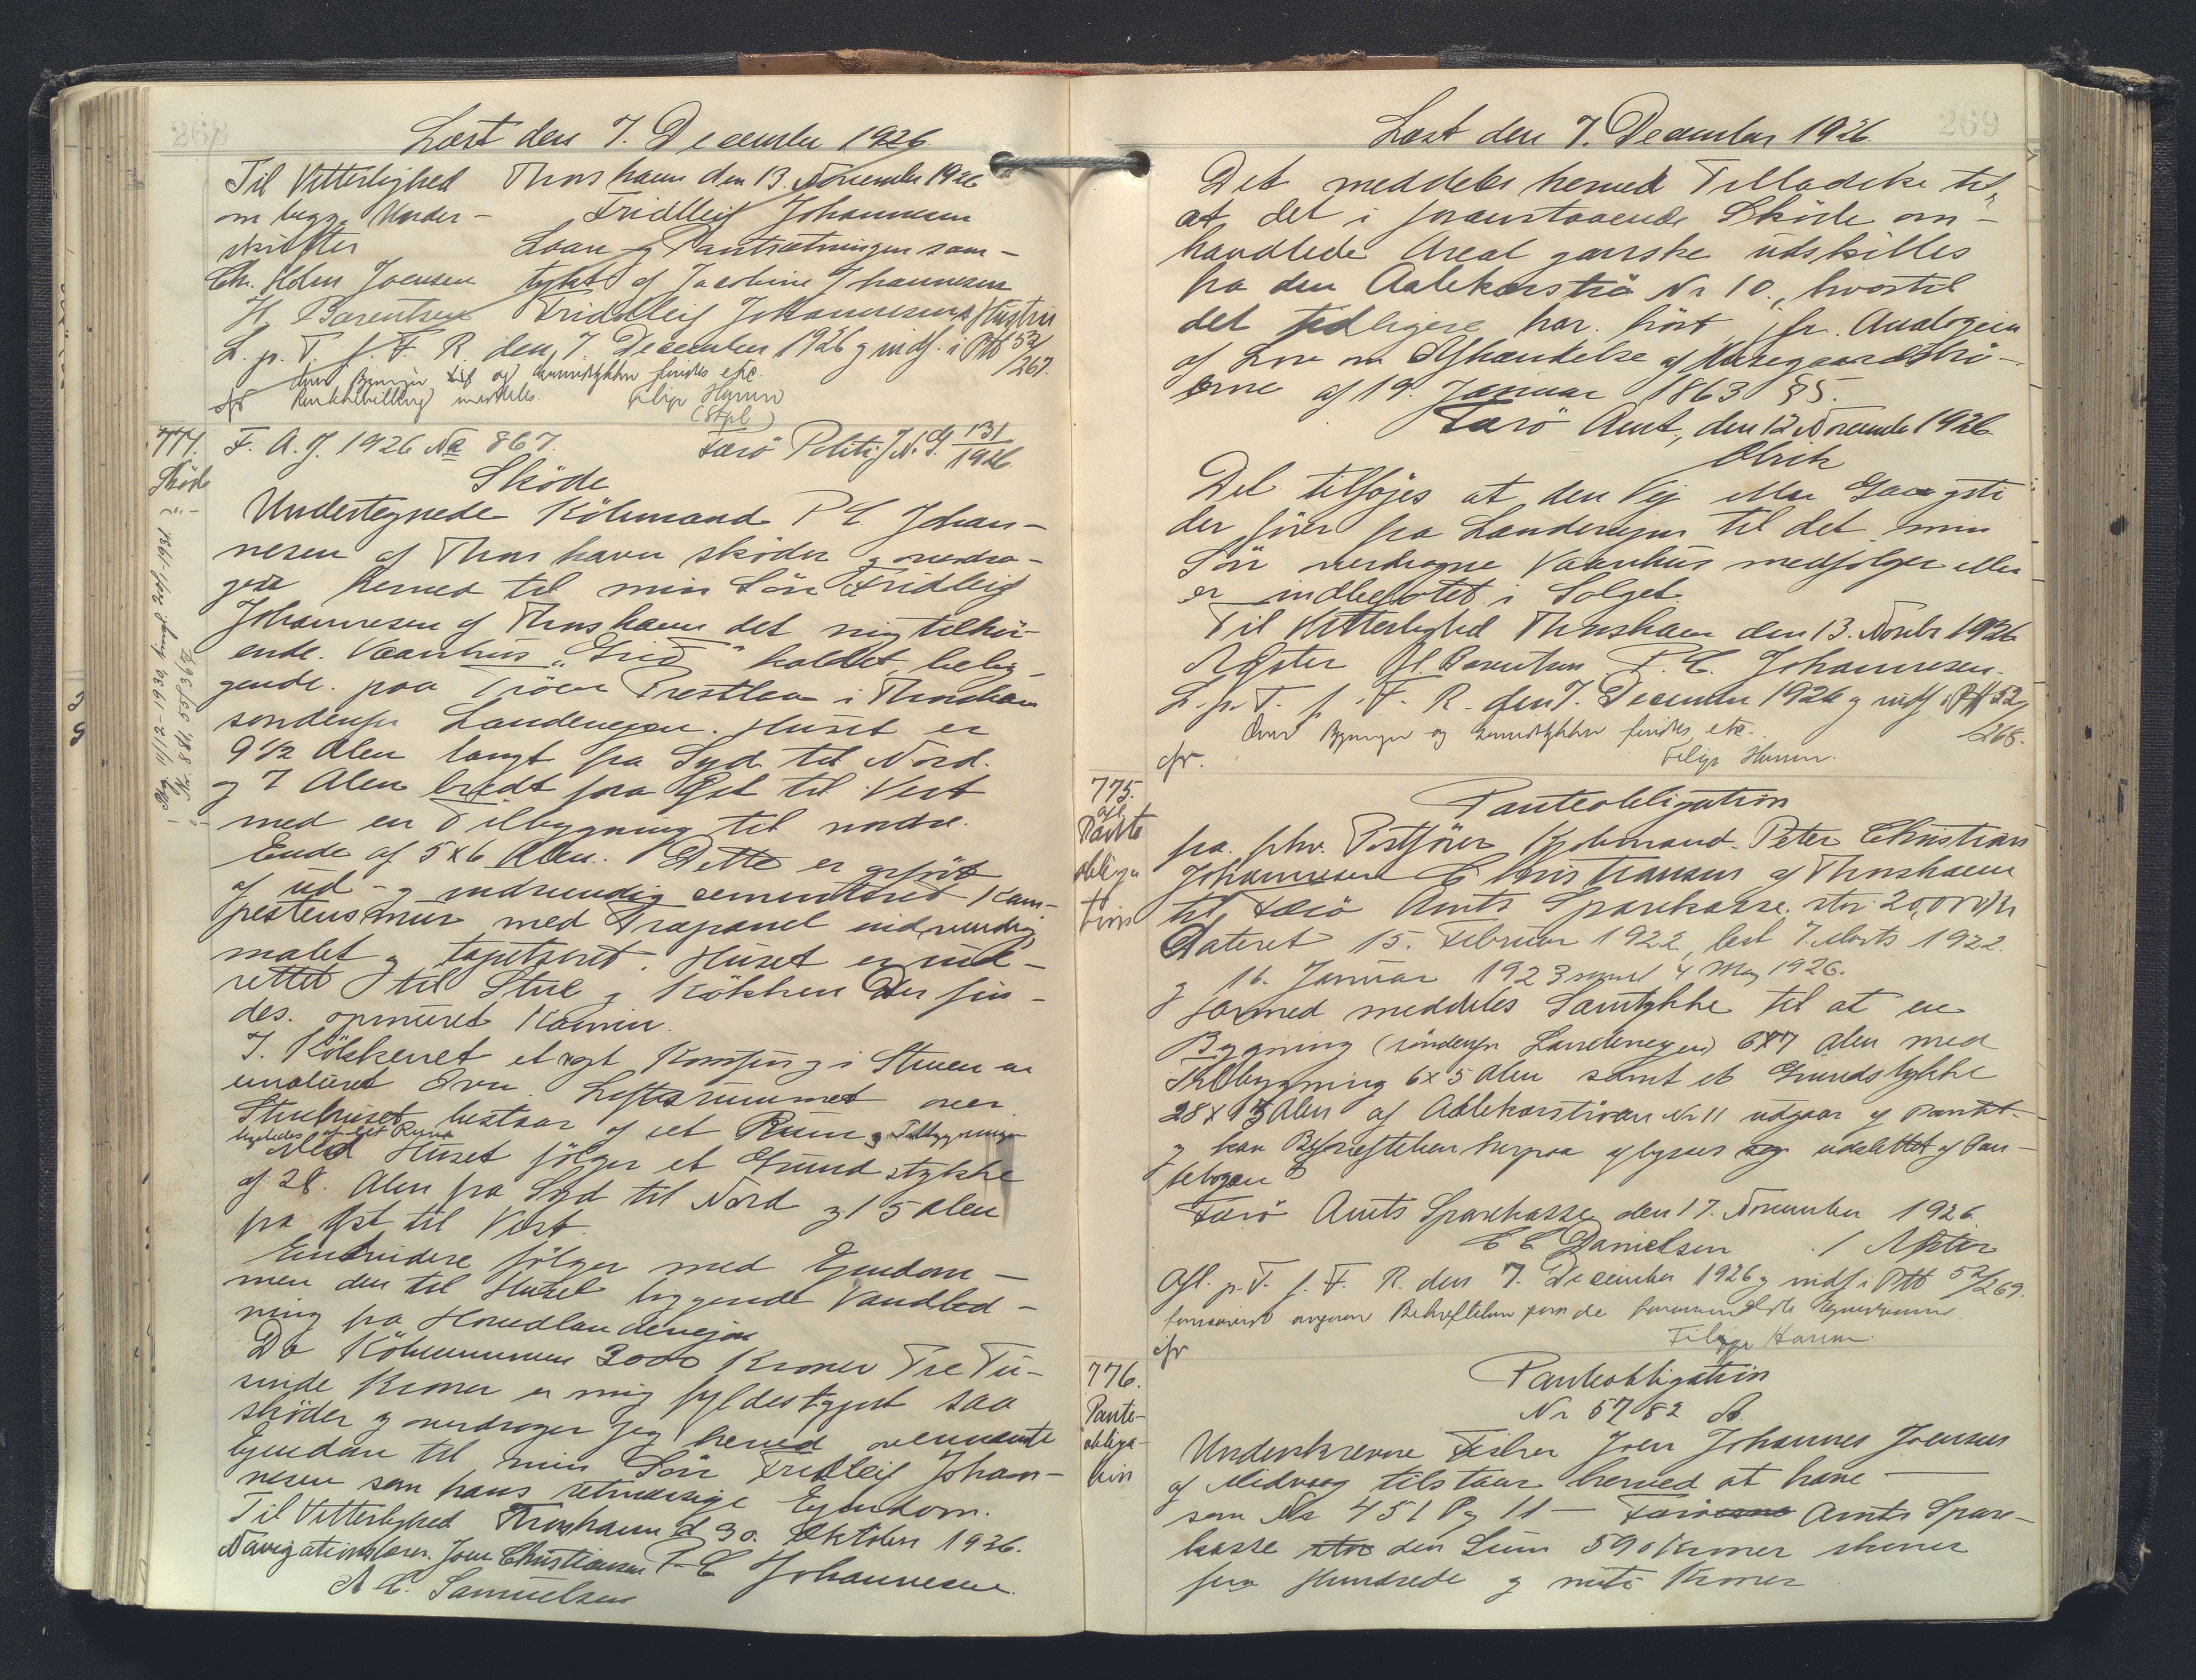 268
Læst den 7. December 1926
Til Vitterlighed Thorshavn den 13. November 1926
om begge Under- Fridleif Johannesen
skrifter Laan og Pantsætningen sam-
Chr. Holm Joensen tykt af Jacobine Johannesen
H. Barentsen Fridleif Johannesens Hustru
L. p. T. f. F. R. den 7. December 1926 og indf. i Ptb 52/267.
Bygninger og Grundstykke findes etc.
meddeles. Filip Hamm
(Stpl.)
774. F. A. J. 1926 No 867. Færö Politi J. N. 131/1926
Sköde
Sköde
Undertegnede Köbmand P. C. Johan-
nesen af Thorshavn sköder og overdra-
ger herved til min Sön Fridleif
Johannesen af Thorshavn det mig tilhör-
ende Vaanhus "Grid" kaldet belig-
gende paa Tröen Prestlaa i Thorshavn
söndenfor Landevejen. Huset er
9 1/2 Alen langt fra Syd til Nord
og 7 Alen bredt fra Öst til Vest
med en Tilbygning til nordre
Ende af 5x6 Alen. Dette er opfört
af ud- og indvendig cementeret Kam-
pestensmur med Træpanel indvendig
malet og tapetseret. Huset er ind-
rettet til Stue og Kökken Der fin-
des opmuret Kamin.
I Kökkenet et nyt Komfur og i Stuen en
emaleret Ovn. Loftsrummet over
Stuehuset bestaar af et Rum og Tilbygningen
ligeledes af et Rum
Med Huset fölger et Grundstykke
af 28 Alen fra Syd til Nord og 15 Alen
fra Öst til Vest.
Endvidere fölger med Ejendom-
men den til Huset liggende Vandled-
ning fra Hovedlandevejen
Da Köbesummen 3000 Kroner Tre Tu-
sinde Kroner er mig fyldestgjort saa
sköder og overdrager jeg herved ovennævnte
Ejendom til min Sön Fridleif Johan-
nesen som hans retmæssige Ejendom.
Til Vitterlighed Thorshavn d 30. Oktober 1926.
Navigationslærer. Joen Christiansen P. C. Johannesen.
A C. Samuelsen
269
Læst den 7. December 1926.
Det meddeles herved Tilladelse til,
at det i foranstaaende Sköde om-
handlede Areal ganske udskilles
fra den Aalekærströ Nr 10., hvortil
det tidligere har hört, jfr. Analogien
af Lov om Afhændelse af Husegaardströ-
erne af 19. Januar 1863 §5.
Færö Amt, den 12 November 1926
Ulrik
Det tilföjes at den Vej eller Gangsti
der förer fra Landevejen til det min
Sön overdragne Vaanhus medfölger eller
er indbefattet i Salget.
Til Vitterlighed Thorshavn den 13. Novbr 1926
A Ziska H. Barentsen P. C. Johannesen.
L. p. T. f. F. R. den 7. December 1926 og indf i Ptb 52/268.
Bygninger og Grundstykke findes etc.
Filip Hamm.
775.
afl.
Pante
obliga
tion
Panteobligation
fra fhv. Postförer Kjöbmand Peter Christian
Johannesen Christiansen af Thorshavn
til Færö Amts Sparekasse stor 20,000 Kr
Dateret 15. Februar 1922, læst 7. Marts 1922.
og 16. Januar 1923 samt 4 Maj 1926.
Hermed meddeles Samtykke til at en
Bygning (söndenfor Landevejen) 6x7 Alen med
Tilbygning 6x5 Alen samt et Grundstykke
28x15 Alen af Aalekærströen Nr 11 udgaar af Pantet
og kan Behæftelsen herpaa aflyses og udslettet af Pan-
tebogen
Færö Amts Sparekasse den 17. November 1926.
C C Danielsen / A Ziska
Afl. p. T. f. F. R. den 7. December 1926 og indf i Ptb 52/269.
forsaavidt angaar Behæftelsen paa de
Filip Hamm.
776.
Pante-
obliga-
tion
Panteobligation
Nr 5782 A.
Underskrevne Fisker Joen Johannes Joensen
af Midvaag tilstaar herved at have
som No 451 Pg 11 - Færöernes Amts Spare-
kasse stor den Sum 590 Kroner skriver
fem Hundrede og niti Kroner